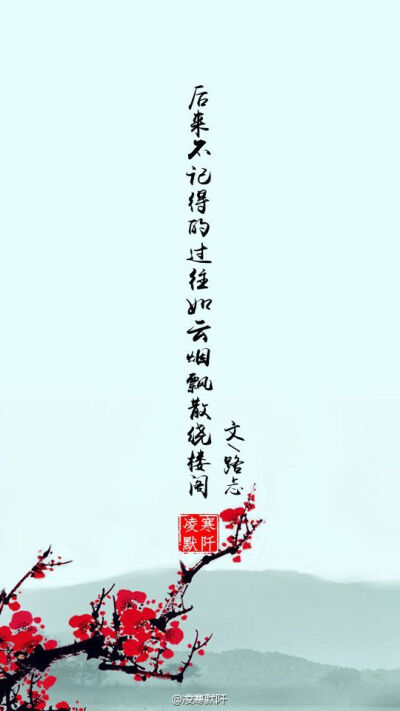 后来不记得的过往如云烟飘散绕楼阁
文/路忘
凌寒
默阡
@凌寒默阡